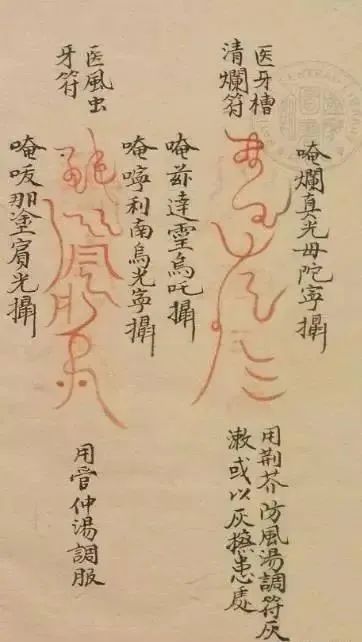 医牙槽
清爛符
唵爛真光毋陀寧攝
唵茲達霊烏吒攝
用荆芥防風湯調符灰
漱或以灰擦患處
医風虫
牙符
唵寧利南烏光寧攝
唵㕹那塗賔光攝
用管仲湯調服